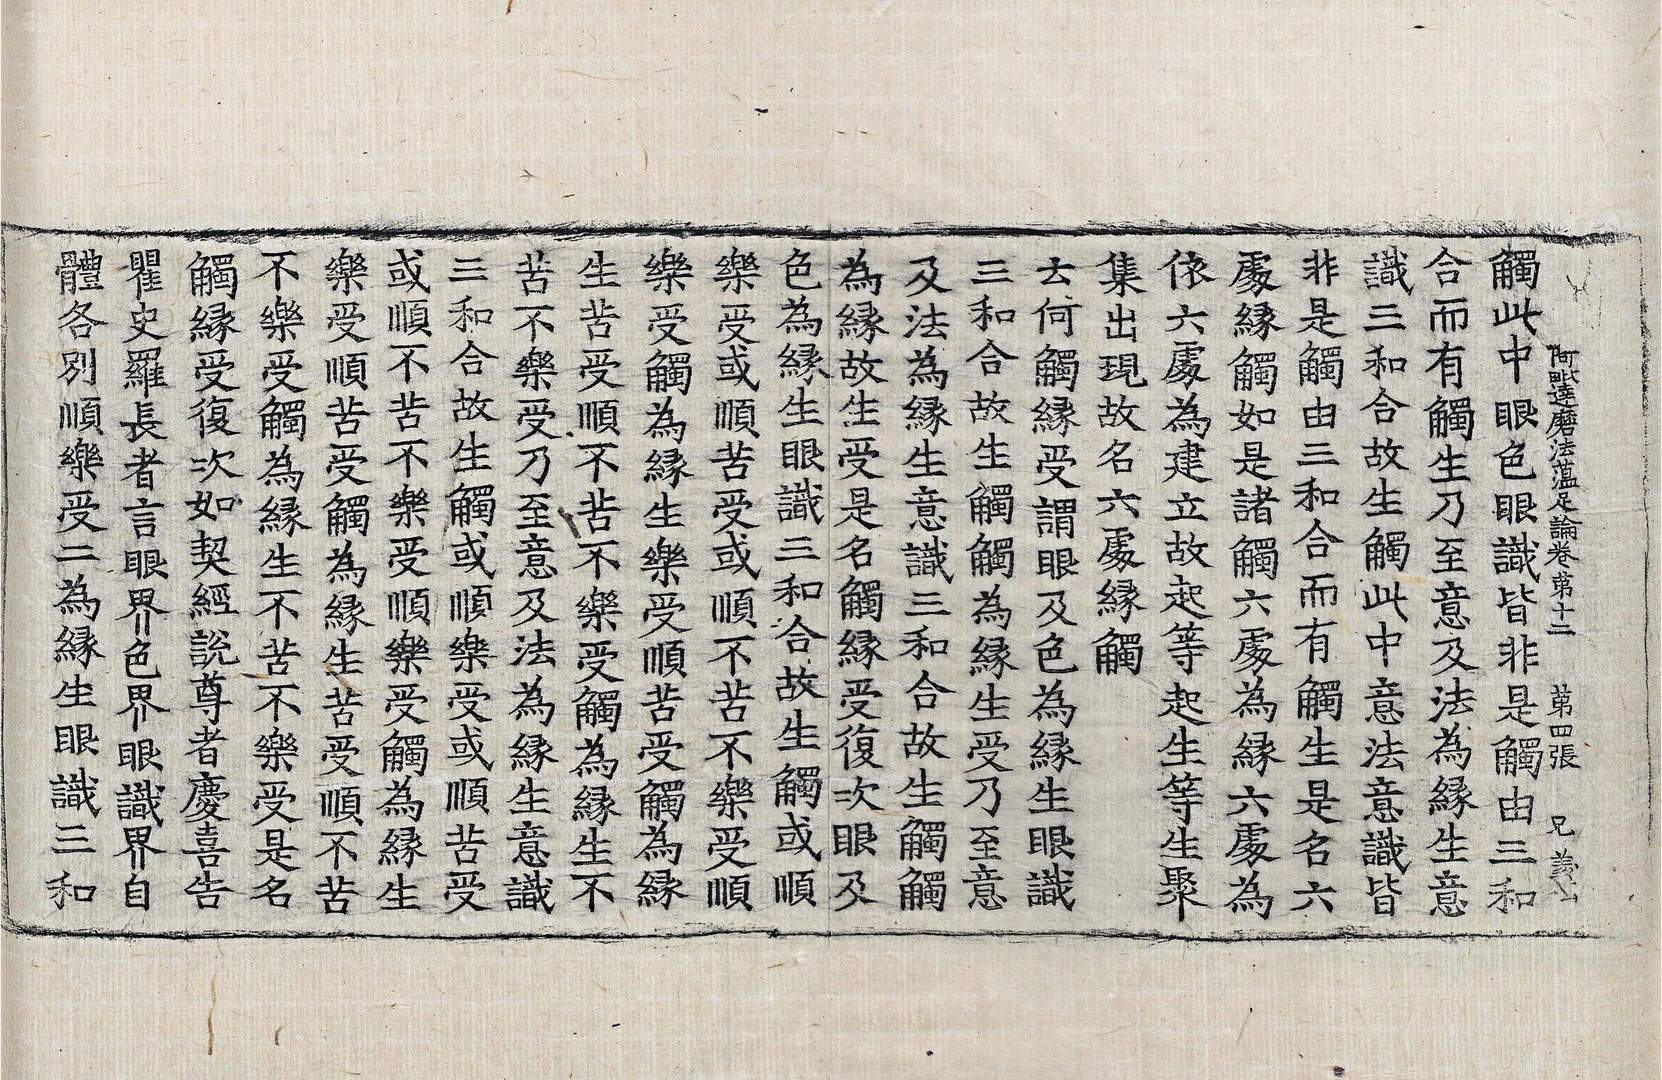 阿毗達磨法蘊足論卷第十二 第四張 兄
觸此中眼色眼識皆非是觸由三和
合而有觸生乃至意及法為緣生意
識三和合故生觸此中意法意識皆
非是觸由三和合而有觸生是名六
處緣觸如是諸觸六處為緣六處為
依六處為建立故起等起生等生聚
集出現故名六處緣觸
云何觸緣受謂眼及色為緣生眼識
三和合故生觸觸為緣生受乃至意
及法為緣生意識三和合故生觸觸
為緣故生受是名觸緣受復次眼及
色為緣生眼識三和合故生觸或順
樂受或順苦受或順不苦不樂受順
樂受觸為緣生樂受順苦受觸為緣
生苦受順不苦不樂受觸為緣生不
苦不樂受乃至意及法為緣生意識
三和合故生觸或順樂受或順苦受
或順不苦不樂受順樂受觸為緣生
樂受順苦受觸為緣生苦受順不苦
不樂受觸為緣生不苦不樂受是名
觸緣受復次如契經說尊者慶喜告
瞿史羅長者言眼界色界眼識界自
體各別順樂受二為緣生眼識三和